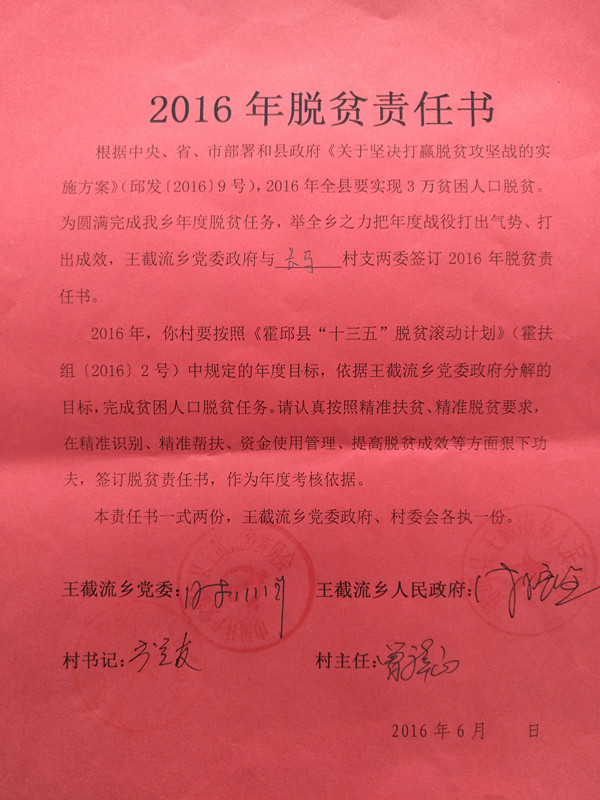 2016年脱贫责任书
根据中央、省、市部署和县政府《关于坚决打赢脱贫攻坚战的实
施方案》（邱发〔2016〕9号），2016年全县要实现3万贫困人口脱贫。
为圆满完成我乡年度脱贫任务，举全乡之力把年度战役打出气势、打
出成效，王截流乡党委政府与 长马 村支两委签订2016年脱贫责
任书。
2016年，你村要按照《霍邱县“十三五”脱贫滚动计划》（霍扶
组〔2016〕2号）中规定的年度目标，依据王截流乡党委政府分解的
目标，完成贫困人口脱贫任务。请认真按照精准扶贫、精准脱贫要求，
在精准识别、精准帮扶、资金使用管理、提高脱贫成效等方面狠下功
夫，签订脱贫责任书，作为年度考核依据。
本责任书一式两份，王截流乡党委政府、村委会各执一份。
王截流乡党委： 王截流乡人民政府：
村书记： 村主任：
2016年6月 日